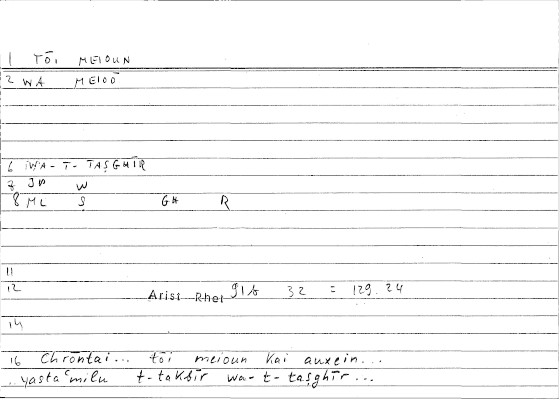 1 TŌI MEIOUN
2 WA MEIOŌ
6 WA-T-TAṢGHĪR
7 JP W
8 ML Ṣ GH R
11
12 Arist Rhet 91b 32 = 129.24
14
16 Chrōntai... tōi meioun kai auxein...
..yastaʿmilu t-takbīr wa-t-taṣghīr...